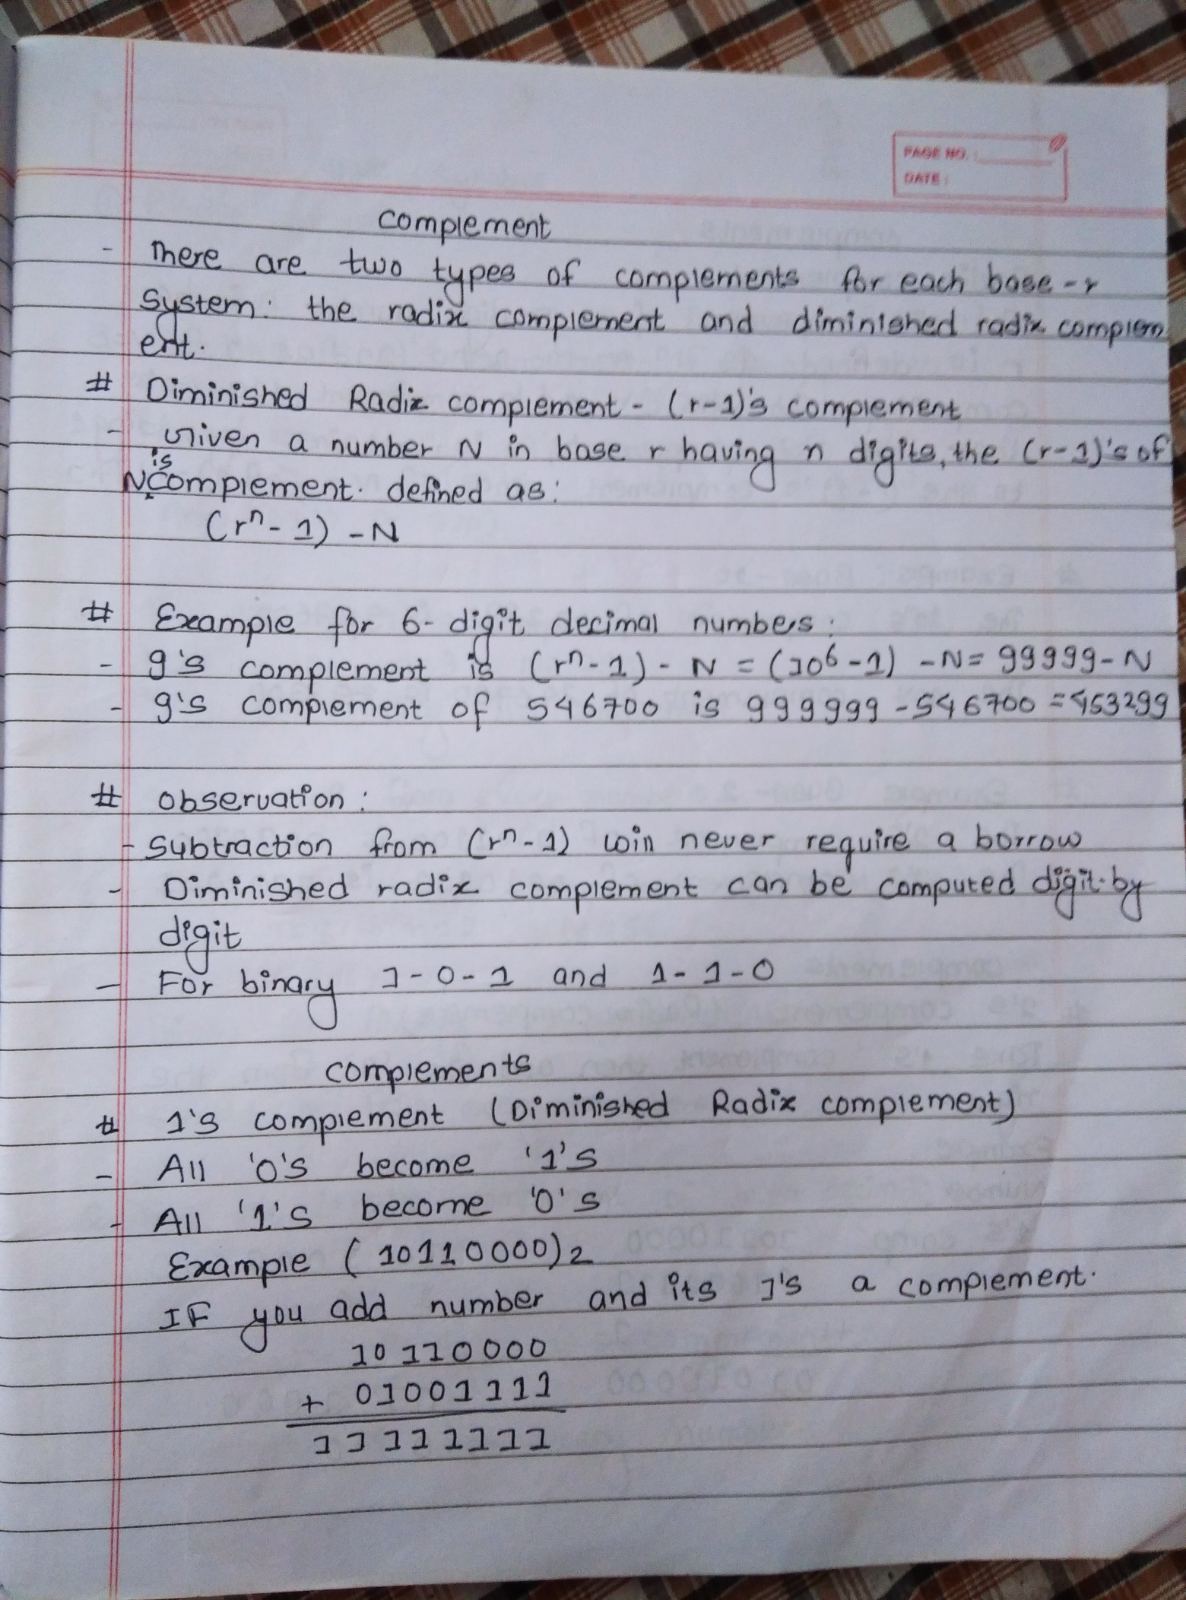 PAGE NO. :
DATE :
complement
- There are two types of complements for each base -r
System: the radix complement and diminished radix complem
ent.
# Diminished Radix complement - (r-1)'s complement
- Given a number N in base r having n digits, the (r-1)'s of
is
N complement. defined as:
(rⁿ - 1) - N
# Example for 6- digit decimal numbers:
- 9's complement is (rⁿ - 1) - N = (10⁶ - 1) - N = 99999 - N
- 9's complement of 546700 is 999999 - 546700 = 453299
# observation :
- Subtraction from (rⁿ - 1) will never require a borrow
- Diminished radix complement can be computed digit-by
digit
- For binary 1 - 0 - 1 and 1 - 1 - 0
complements
# 1's complement (Diminished Radix complement)
- All '0's become '1's
- All '1's become '0's
Example (10110000)₂
IF you add number and its 1's a complement.
10110000
+ 01001111
11111111